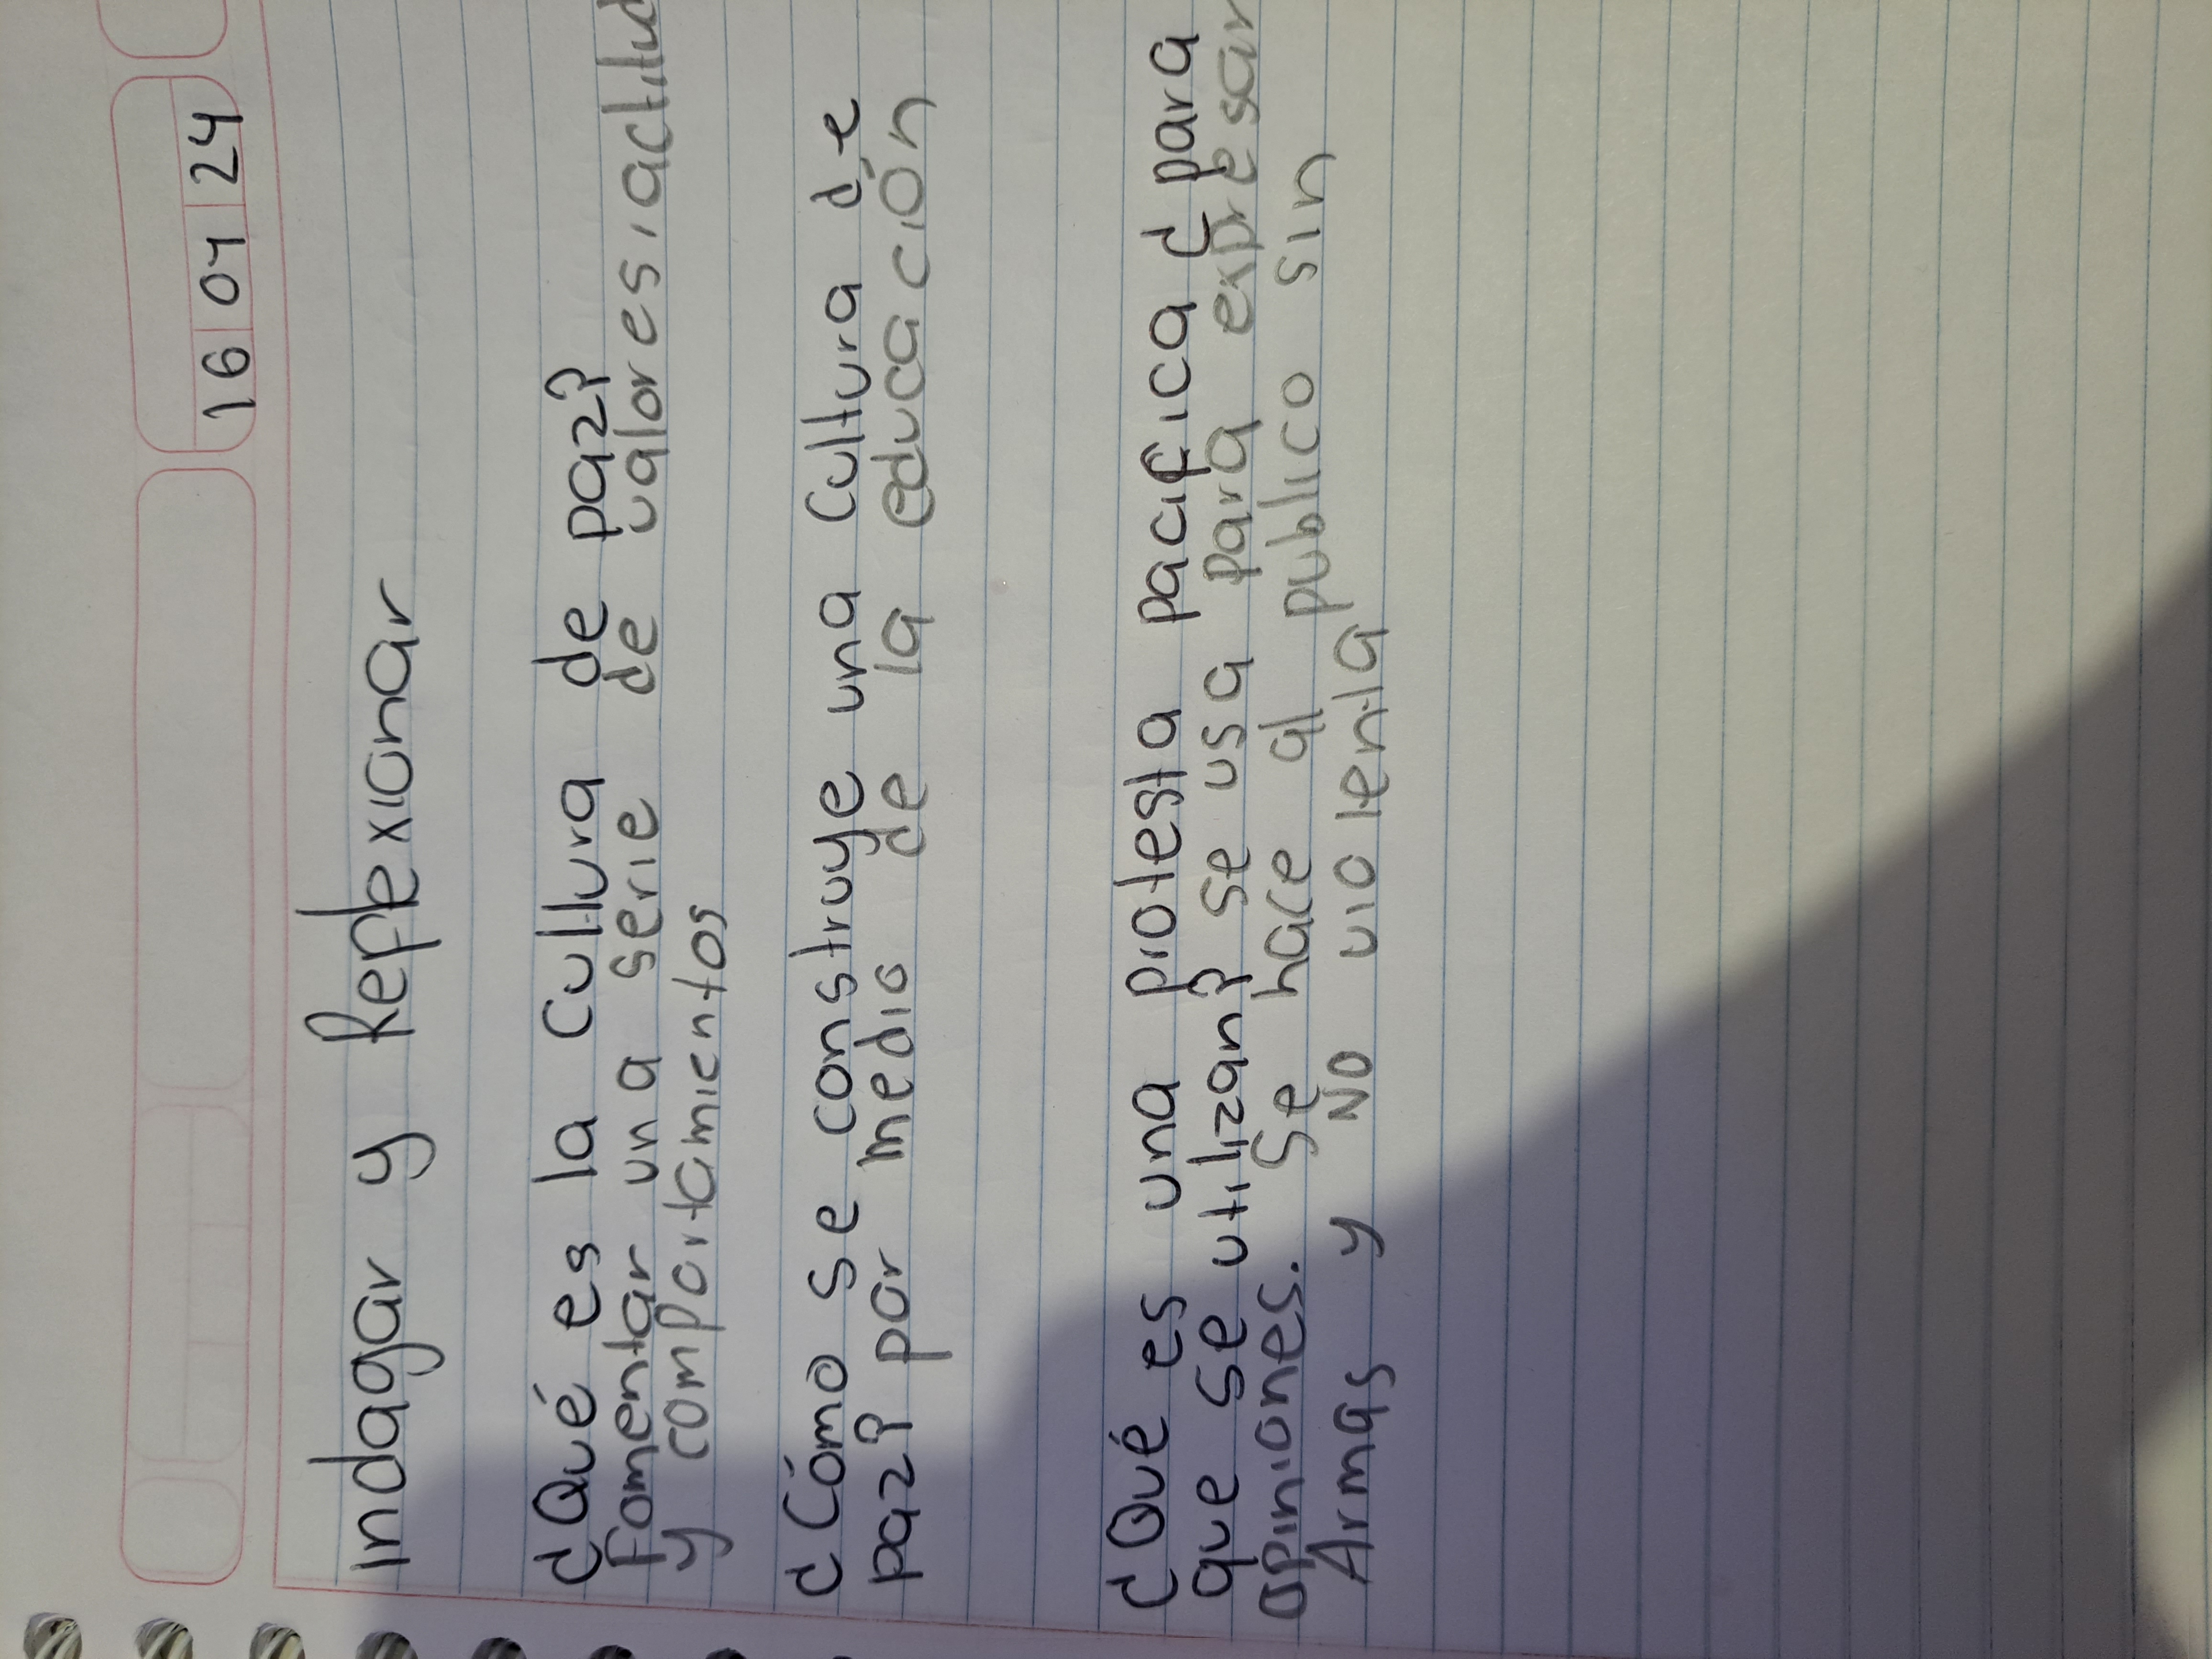 16 04 24
Indagar y Reflexionar
¿Qué es la cultura de paz?
Fomentar una serie de valores, actitud
y comportamientos
¿Cómo se construye una cultura de
paz? por medio de la educación
¿Qué es una protesta pacifica ¿ para
que se utilizan? se usa para expresar
opiniones. Se hace al publico sin
Armas y NO violenta